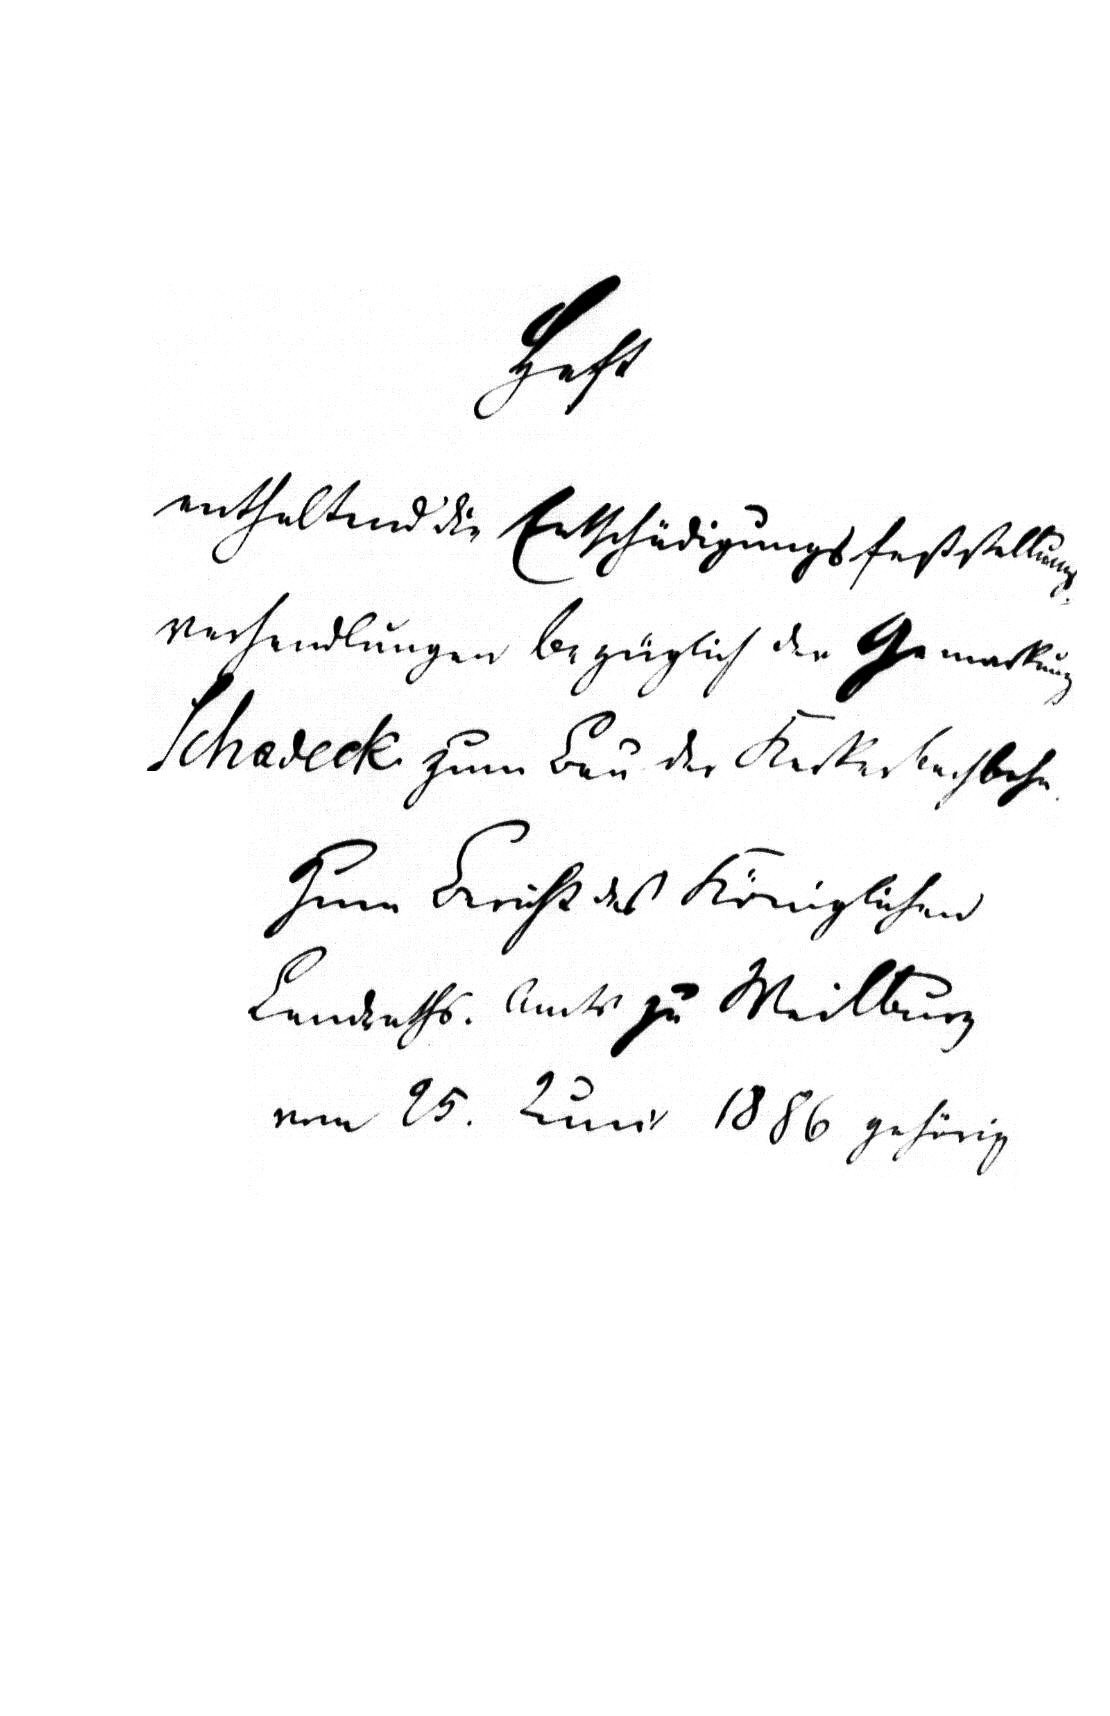 Heft
enthaltend die Entschädigungsfeststellungs-
verhandlungen bezüglich der Gemarkung
Schadeck zum Bau der Kerkerbachbahn.
Zum Bericht des Königlichen
Landraths-Amts zu Weilburg
vom 25. Juni 1886 gehörig